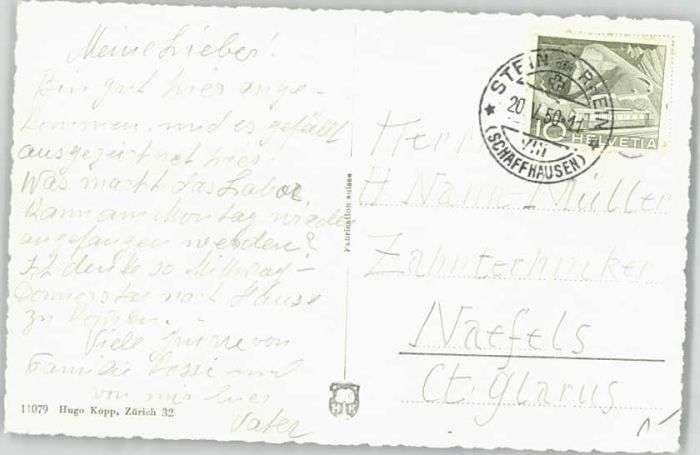 Meine Lieber!
Bin gut hier ange-
kommen, und es gefällt
ausgezeichnet hier.
Was macht das Labor,
kann am Montag wieder
angefangen werden?
Ich denke so Mittwoch-
Donnerstag nach Hause
zu kommen.
Viele Grüsse von
Familie und
von mir hier
Vater
11079 Hugo Kopp, Zürich 32
Fabrication suisse
HK
STEIN AM RHEIN
20.V.50-11
VIII
(SCHAFFHAUSEN)
10 HELVETIA
Herrn
H Nann-Müller
Zahntechniker
Naefels
Ct. Glarus